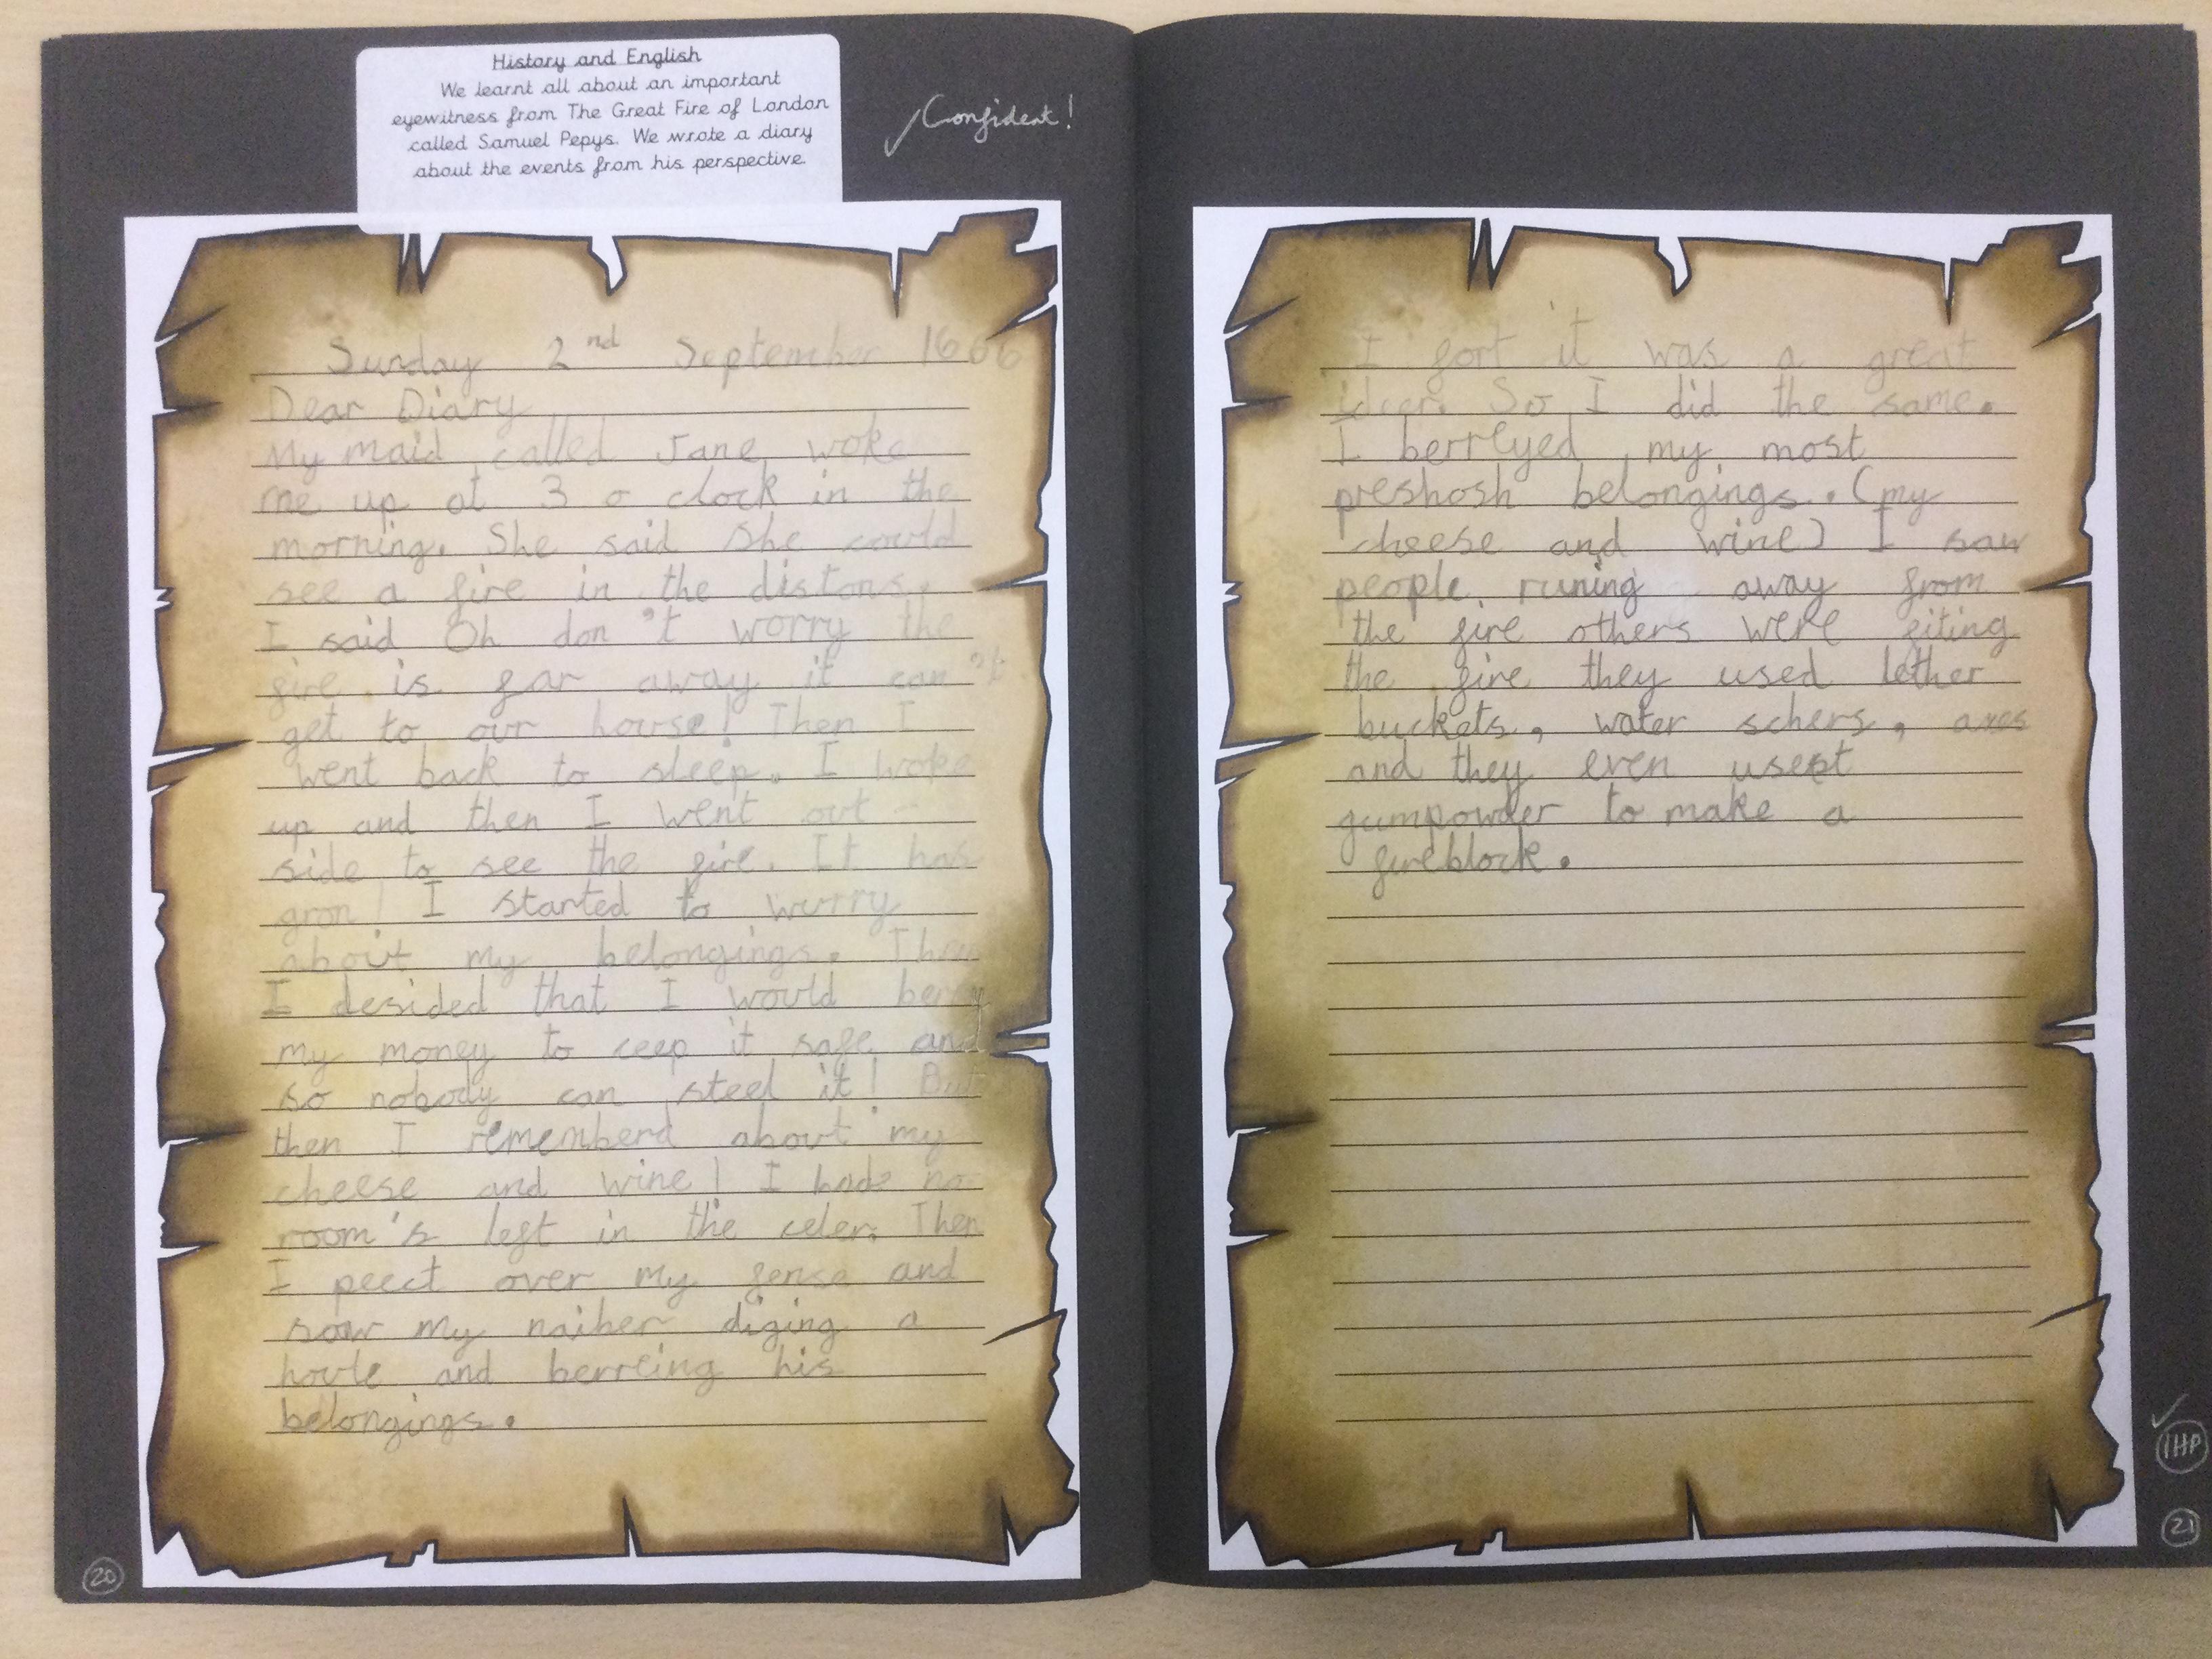 History and English
We learnt all about an important
eyewitness from The Great Fire of London
called Samuel Pepys. We wrote a diary
about the events from his perspective.
✓ Confident!
Sunday 2nd September 1666
Dear Diary
My maid called Jane woke
me up at 3 o clock in the
morning. She said she could
see a fire in the distans.
I said Oh don't worry the
fire is far away it can't
get to our house! Then I
went back to sleep. I woke
up and then I went out-
side to see the fire. It has
gron! I started to wurry
about my belongings. Then
I desided that I would berry
my money to ceep it safe and
so nobody can steel it! But
then I rememberd about my
cheese and wine! I hade no
room's left in the celer. Then
I peect over my fense and
saw my naiher diging a
houle and berreing his
belongings.
20
I fort it was a great
ideer. So I did the same.
I berreyed my most
preshosh belongings. (my
cheese and wine) I saw
people runing away from
the fire others were fiting
the fire they used lether
buckets, water schers, axes
and they even usept
gumpowder to make a
fireblock.
✓
1HP
21